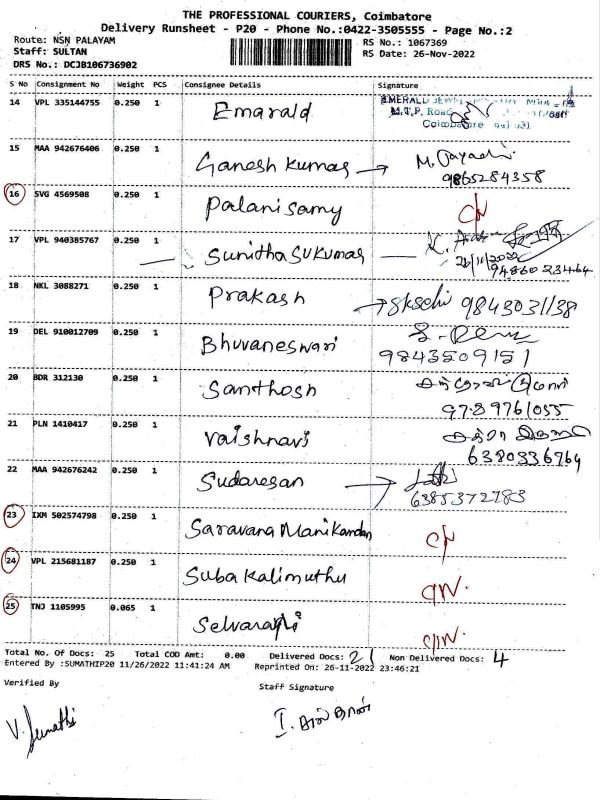 THE PROFESSIONAL COURIERS, Coimbatore
Delivery Runsheet - P20 - Phone No.:0422-3505555 - Page No.:2
Route: NSN PALAYAM
Staff: SULTAN
DRS No.: DCJB106736902
RS No.: 1067369
RS Date: 26-Nov-2022
S No Consignment No Weight PCS Consignee Details Signature
14 VPL 335144755 0.250 1 Emarald
M.T.P. Road
Coimbatore
15 MAA 942676406 0.250 1 Ganesh Kumar
9865284358
16 SVG 4569508 0.250 1 Palanisamy
17 VPL 940385767 0.250 1 Sunitha Sukumar
26/11/2022
9486023464
18 NKL 3088271 0.250 1 Prakash 9843031138
19 DEL 910012709 0.250 1 Bhuvaneswari
9843509151
20 BDR 312130 0.250 1 Santhosh
9789761055
21 PLN 1410417 0.250 1 Vaishnavi
6380336764
22 MAA 942676242 0.250 1 Sudaresan
6385372783
23 IXM 502574798 0.250 1 Saravana Manikandan
24 VPL 215681187 0.250 1 Suba Kalimuthu
25 TNJ 1105995 0.065 1
Total No. Of Docs: 25 Total COD Amt: 0.00 Delivered Docs: 21 Non Delivered Docs: 4
Entered By :SUMATHIP20 11/26/2022 11:41:24 AM Reprinted On: 26-11-2022 23:46:21
Verified By
Staff Signature